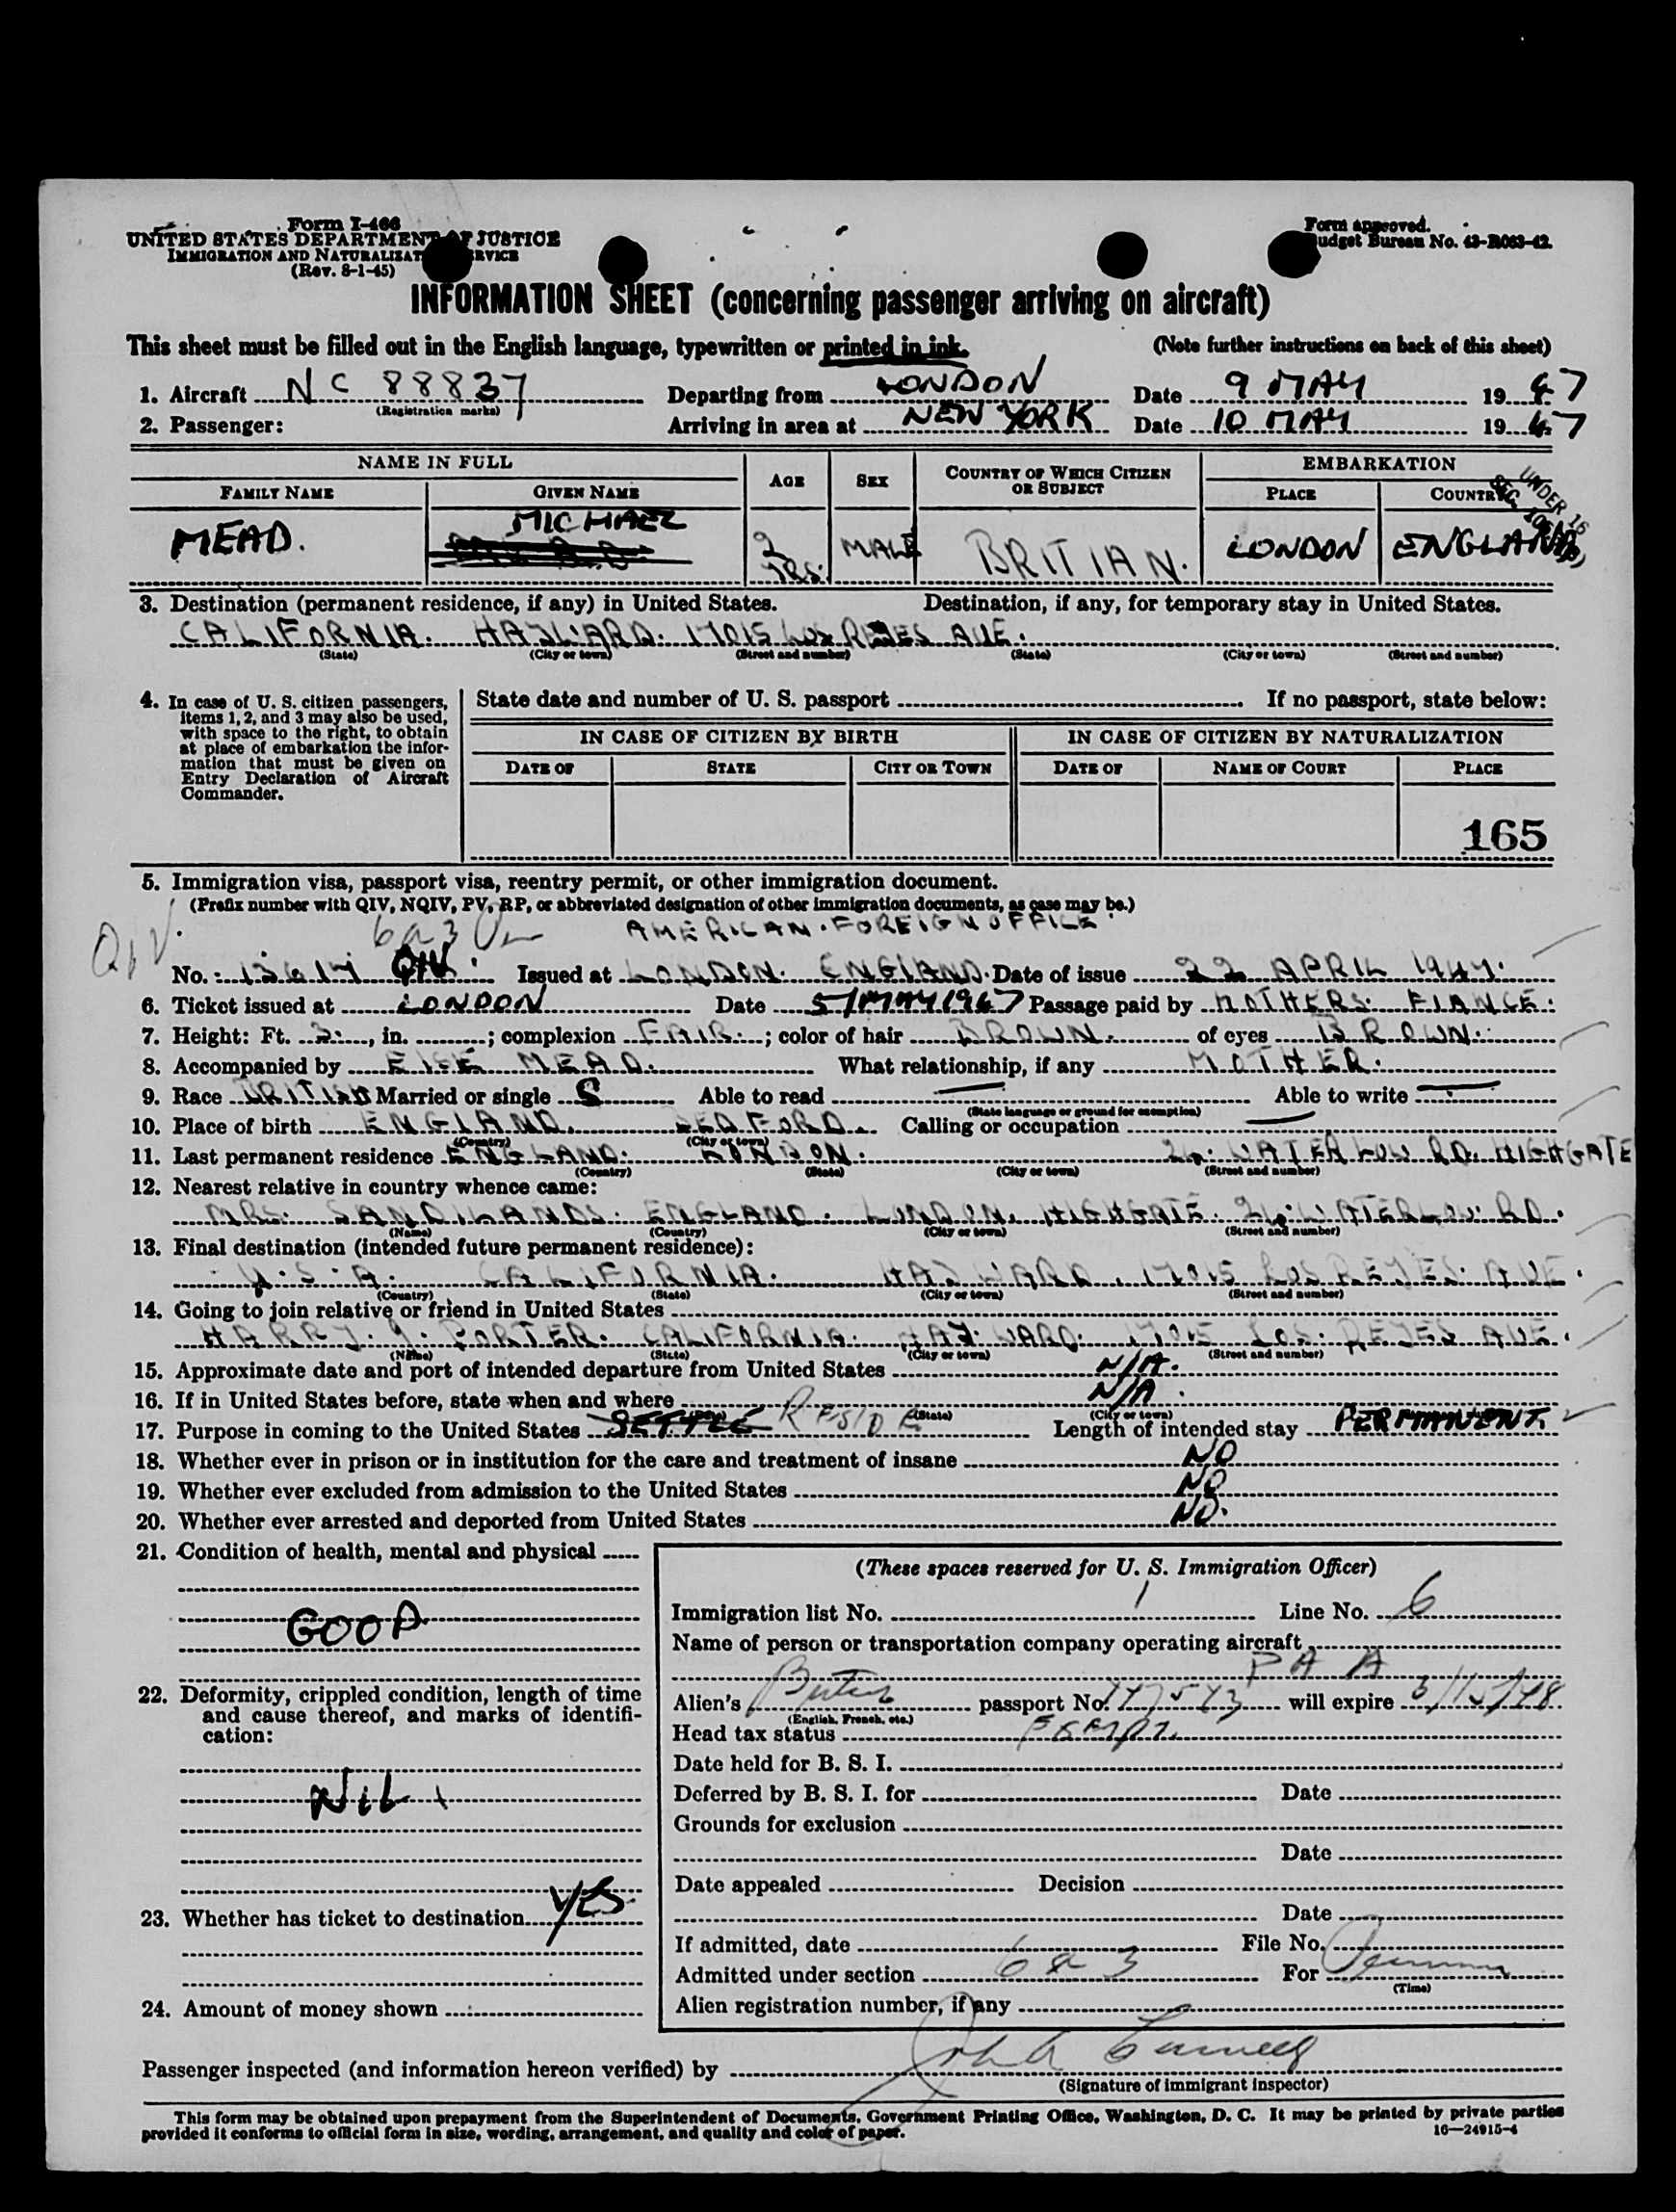 Form I-466
UNITED STATES DEPARTMENT OF JUSTICE
IMMIGRATION AND NATURALIZATION SERVICE
(Rev. 8-1-45)
Form approved.
Budget Bureau No. 43-R063-42.
INFORMATION SHEET (concerning passenger arriving on aircraft)
This sheet must be filled out in the English language, typewritten or printed in ink. (Note further instructions on back of this sheet)
1. Aircraft NC 88837 Departing from LONDON Date 9 MAY 1947
(Registration marks)
2. Passenger: Arriving in area at NEW YORK Date 10 MAY 1947
NAME IN FULL AGE SEX COUNTRY OF WHICH CITIZEN OR SUBJECT EMBARKATION
FAMILY NAME GIVEN NAME PLACE COUNTRY
UNDER 16
MEAD. MICHAEL 2 YRS. MALE BRITIAN. LONDON ENGLAND
3. Destination (permanent residence, if any) in United States. Destination, if any, for temporary stay in United States.
CALIFORNIA. HAYWARD. 17015 LOS REYES AVE.
(State) (City or town) (Street and number) (State) (City or town) (Street and number)
4. In case of U. S. citizen passengers, items 1, 2, and 3 may also be used, with space to the right, to obtain at place of embarkation the information that must be given on Entry Declaration of Aircraft Commander.
State date and number of U. S. passport If no passport, state below:
IN CASE OF CITIZEN BY BIRTH IN CASE OF CITIZEN BY NATURALIZATION
DATE OF STATE CITY OR TOWN DATE OF NAME OF COURT PLACE
165
5. Immigration visa, passport visa, reentry permit, or other immigration document.
(Prefix number with QIV, NQIV, PV, RP, or abbreviated designation of other immigration documents, as case may be.)
QIV 6a3 AMERICAN. FOREIGN OFFICE.
No. 13617 QIV. Issued at LONDON. ENGLAND. Date of issue 22 APRIL 1947.
6. Ticket issued at LONDON Date 5/MAY/1947 Passage paid by MOTHERS. FIANCE.
7. Height: Ft. 3., in. ; complexion FAIR. ; color of hair BROWN. of eyes BROWN.
8. Accompanied by MEAD. What relationship, if any MOTHER.
9. Race BRITISH Married or single S Able to read — Able to write —
(State language or ground for exemption)
10. Place of birth ENGLAND. BEDFORD. Calling or occupation —
(Country) (City or town)
11. Last permanent residence ENGLAND. LONDON. 26. WATERLOW RD. HIGHGATE
(Country) (State) (City or town) (Street and number)
12. Nearest relative in country whence came:
MRS. SANDILANDS ENGLAND. LONDON. HIGHGATE. 26. WATERLOW RD.
(Name) (Country) (City or town) (Street and number)
13. Final destination (intended future permanent residence):
U.S.A. CALIFORNIA. HAYWARD. 17015 LOS REYES AVE.
(Country) (State) (City or town) (Street and number)
14. Going to join relative or friend in United States
HARRY. J. PORTER. CALIFORNIA. HAYWARD. 17015 LOS. REYES AVE.
(Name) (State) (City or town) (Street and number)
15. Approximate date and port of intended departure from United States N/A.
16. If in United States before, state when and where N/A.
(State) (City or town)
17. Purpose in coming to the United States SETTLE RESIDE Length of intended stay PERMANENT.
18. Whether ever in prison or in institution for the care and treatment of insane NO
19. Whether ever excluded from admission to the United States NO
20. Whether ever arrested and deported from United States NO.
21. Condition of health, mental and physical
GOOD
22. Deformity, crippled condition, length of time and cause thereof, and marks of identification:
Nil
23. Whether has ticket to destination YES
24. Amount of money shown
(These spaces reserved for U. S. Immigration Officer)
Immigration list No. 1 Line No. 6
Name of person or transportation company operating aircraft
P A A
Alien's passport No. will expire 3/15/48
(English, French, etc.)
Head tax status Exempt
Date held for B. S. I.
Deferred by B. S. I. for Date
Grounds for exclusion
Date
Date appealed Decision
Date
If admitted, date File No.
Admitted under section 6a3 For
(Time)
Alien registration number, if any
Passenger inspected (and information hereon verified) by
(Signature of immigrant inspector)
This form may be obtained upon prepayment from the Superintendent of Documents, Government Printing Office, Washington, D. C. It may be printed by private parties
provided it conforms to official form in size, wording, arrangement, and quality and color of paper. 16—24915-4